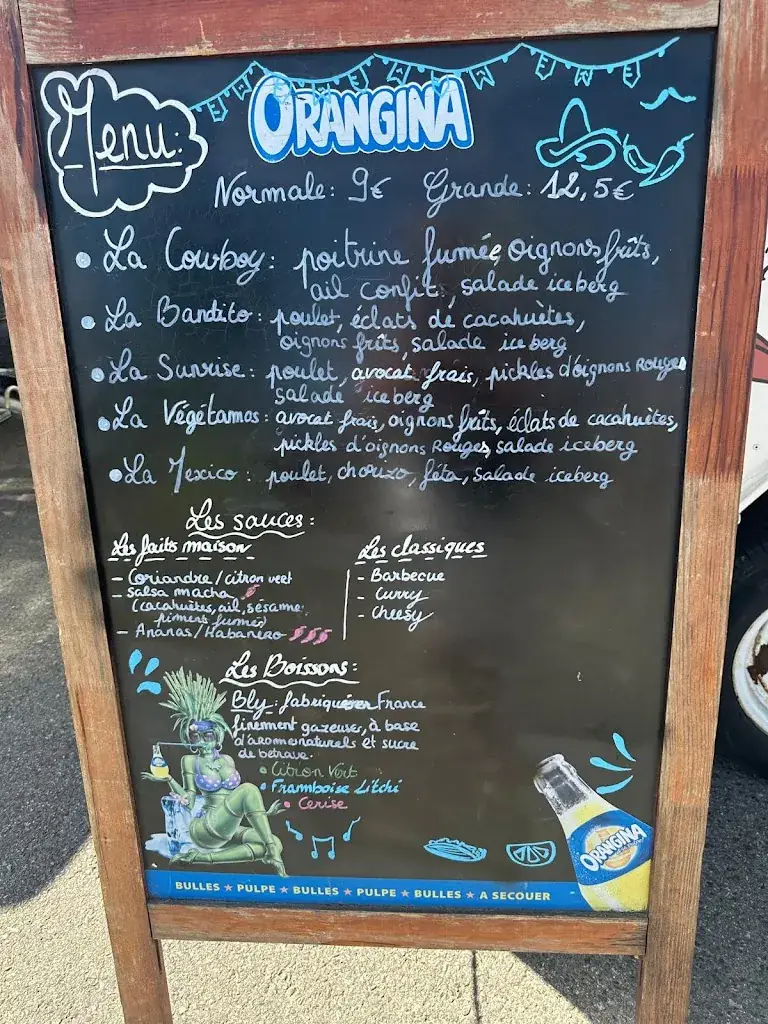 Menu:
ORANGINA
Normale: 9€ Grande: 12,5€
• La Cowboy: poitrine fumée, oignons frîts,
ail confit, salade iceberg
• La Bandito: poulet, éclats de cacahuètes,
oignons frîts, salade iceberg
• La Sunrise: poulet, avocat frais, pickles d'oignons Rouges
salade iceberg
• La Végétamos: avocat frais, oignons frîts, éclats de cacahuètes,
pickles d'oignons Rouges, salade iceberg
• La Mexico: poulet, chorizo, féta, salade iceberg
Les sauces:
Les faits maison
- Coriandre/citron vert
- Salsa macha
(cacahuètes, ail, sésame,
piment fumés)
- Ananas/Habanero
Les classiques
- Barbecue
- Curry
- Cheesy
Les Boissons:
Bly: fabriquée en France
finement gazeuses, à base
d'arome naturels et sucre
de betrave.
• Citron Vert
• Framboise Litchi
• Cerise
ORANGINA
BULLES ★ PULPE ★ BULLES ★ PULPE ★ BULLES ★ A SECOUER